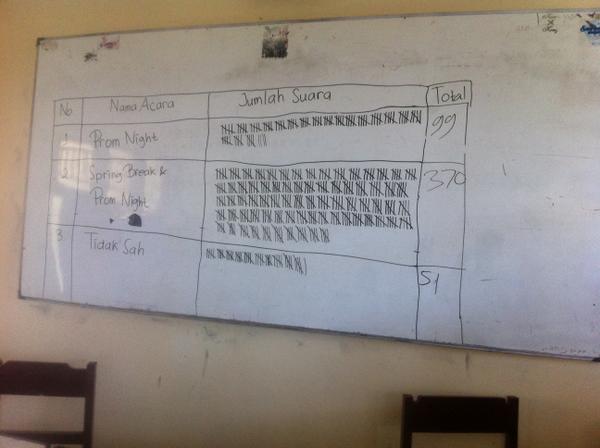 No Nama Acara Jumlah Suara Total
1 Prom Night 99
2 Spring Break & 370
Prom Night
3. Tidak Sah 51